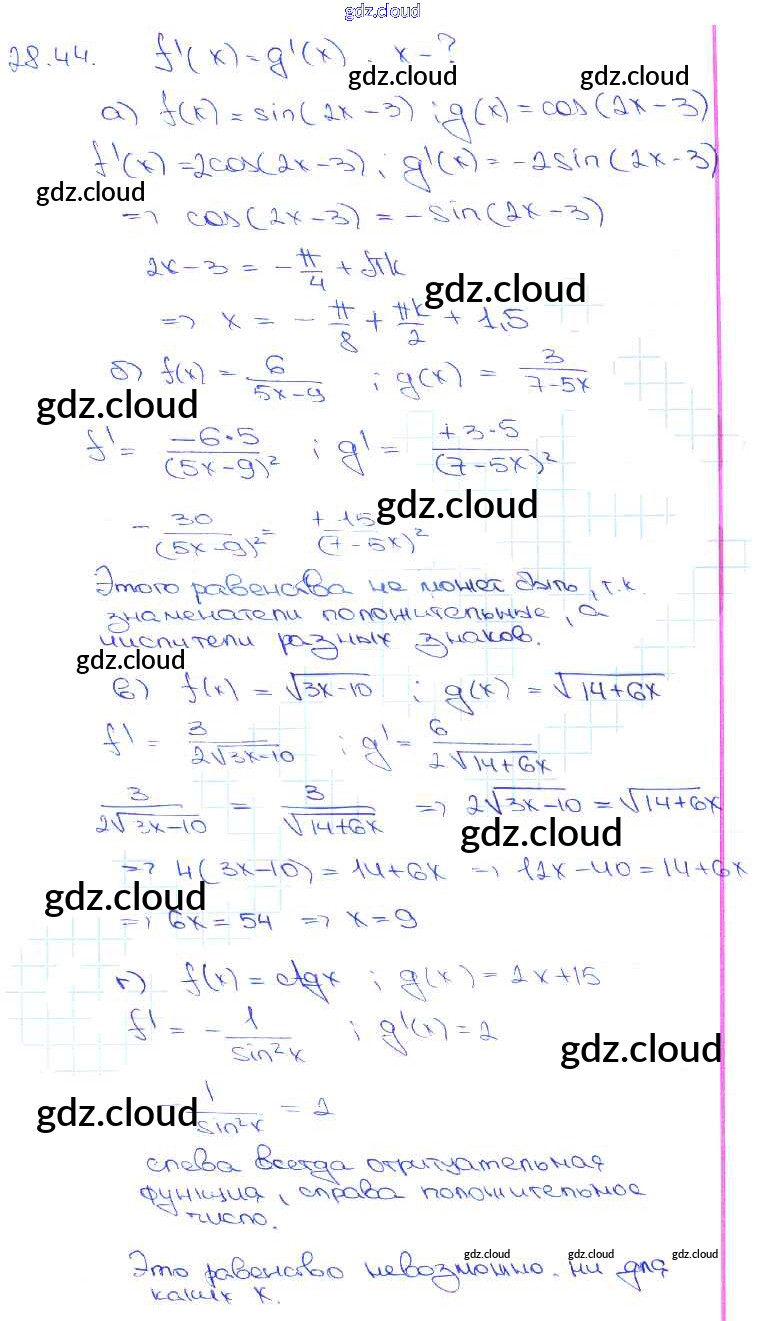 gdz.cloud
28.44. f'(x) = g'(x) . x - ?
gdz.cloud gdz.cloud
а) f(x) = sin(2x-3) ; g(x) = cos(2x-3)
f'(x) = 2cos(2x-3) ; g'(x) = -2sin(2x-3)
gdz.cloud
=> cos(2x-3) = -sin(2x-3)
2x-3 = -π/4 + πk
gdz.cloud
=> x = -π/8 + πk/2 + 1,5
б) f(x) = 6/(5x-9) ; g(x) = 3/(7-5x)
gdz.cloud
f' = -6·5/(5x-9)² ; g' = +3·5/(7-5x)²
gdz.cloud
- 30/(5x-9)² = +15/(7-5x)²
Этого равенства не может быть, т.к.
знаменатели положительные, а
числители разных знаков.
gdz.cloud
в) f(x) = √(3x-10) ; g(x) = √(14+6x)
f' = 3/(2√(3x-10)) ; g' = 6/(2√(14+6x))
3/(2√(3x-10)) = 3/√(14+6x) => 2√(3x-10) = √(14+6x)
gdz.cloud
=> 4(3x-10) = 14+6x => 12x-40 = 14+6x
gdz.cloud
=> 6x = 54 => x = 9
г) f(x) = ctgx ; g(x) = 2x+15
f' = - 1/sin²x ; g'(x) = 2
gdz.cloud
gdz.cloud
- 1/sin²x = 2
слева всегда отрицательная
функция, справа положительное
число.
gdz.cloud gdz.cloud gdz.cloud
Это равенство невозможно. ни для
каких x.